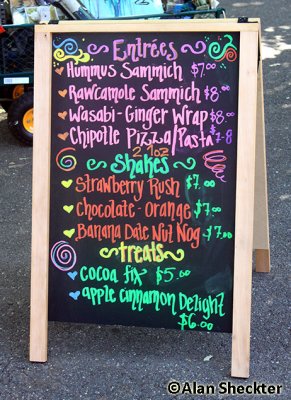 Entrées
Hummus Sammich $7.00
Rawcamole Sammich $8.00
Wasabi-Ginger Wrap $8.00
Chipotle Pizza/Pasta $7-8
Shakes
Strawberry Rush $7.00
Chocolate-Orange $7.00
Banana Date Nut Nog $7.00
treats
cocoa fix $5.00
apple cinnamon Delight
$6.00
©Alan Sheckter